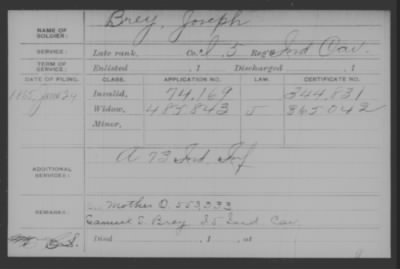 NAME OF SOLDIER: Brey, Joseph
SERVICE: Late rank, Co. I, 5 Reg't Ind Cav.
TERM OF SERVICE: Enlisted , 1 Discharged , 1
DATE OF FILING. CLASS. APPLICATION NO. LAW. CERTIFICATE NO.
1865, June 24 Invalid, 74,169 344,831
Widow, 485,843 J 365,042
Minor,
ADDITIONAL SERVICES: A 73 Ind. Inf
REMARKS: Mother O. 553,333
Samuel S. Brey I 5 Ind. Cav.
Died , 1 , at